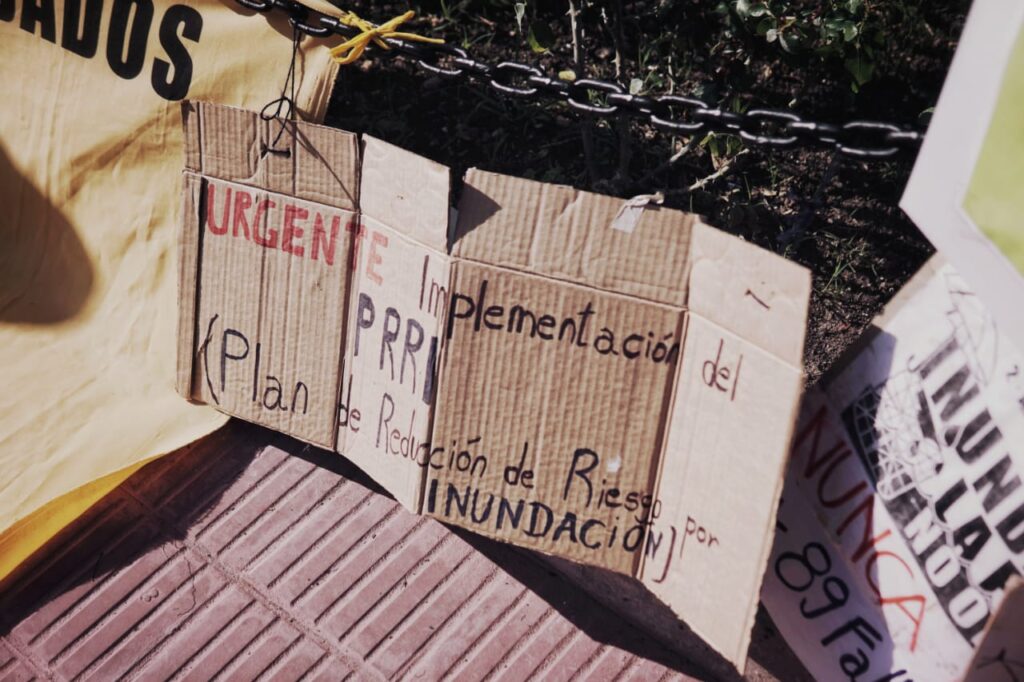 ADOS
URGENTE Implementación del
PRRI
(Plan de Reducción de Riesgo por
INUNDACIÓN)
INUND
LA
NUNCA
89 Fa